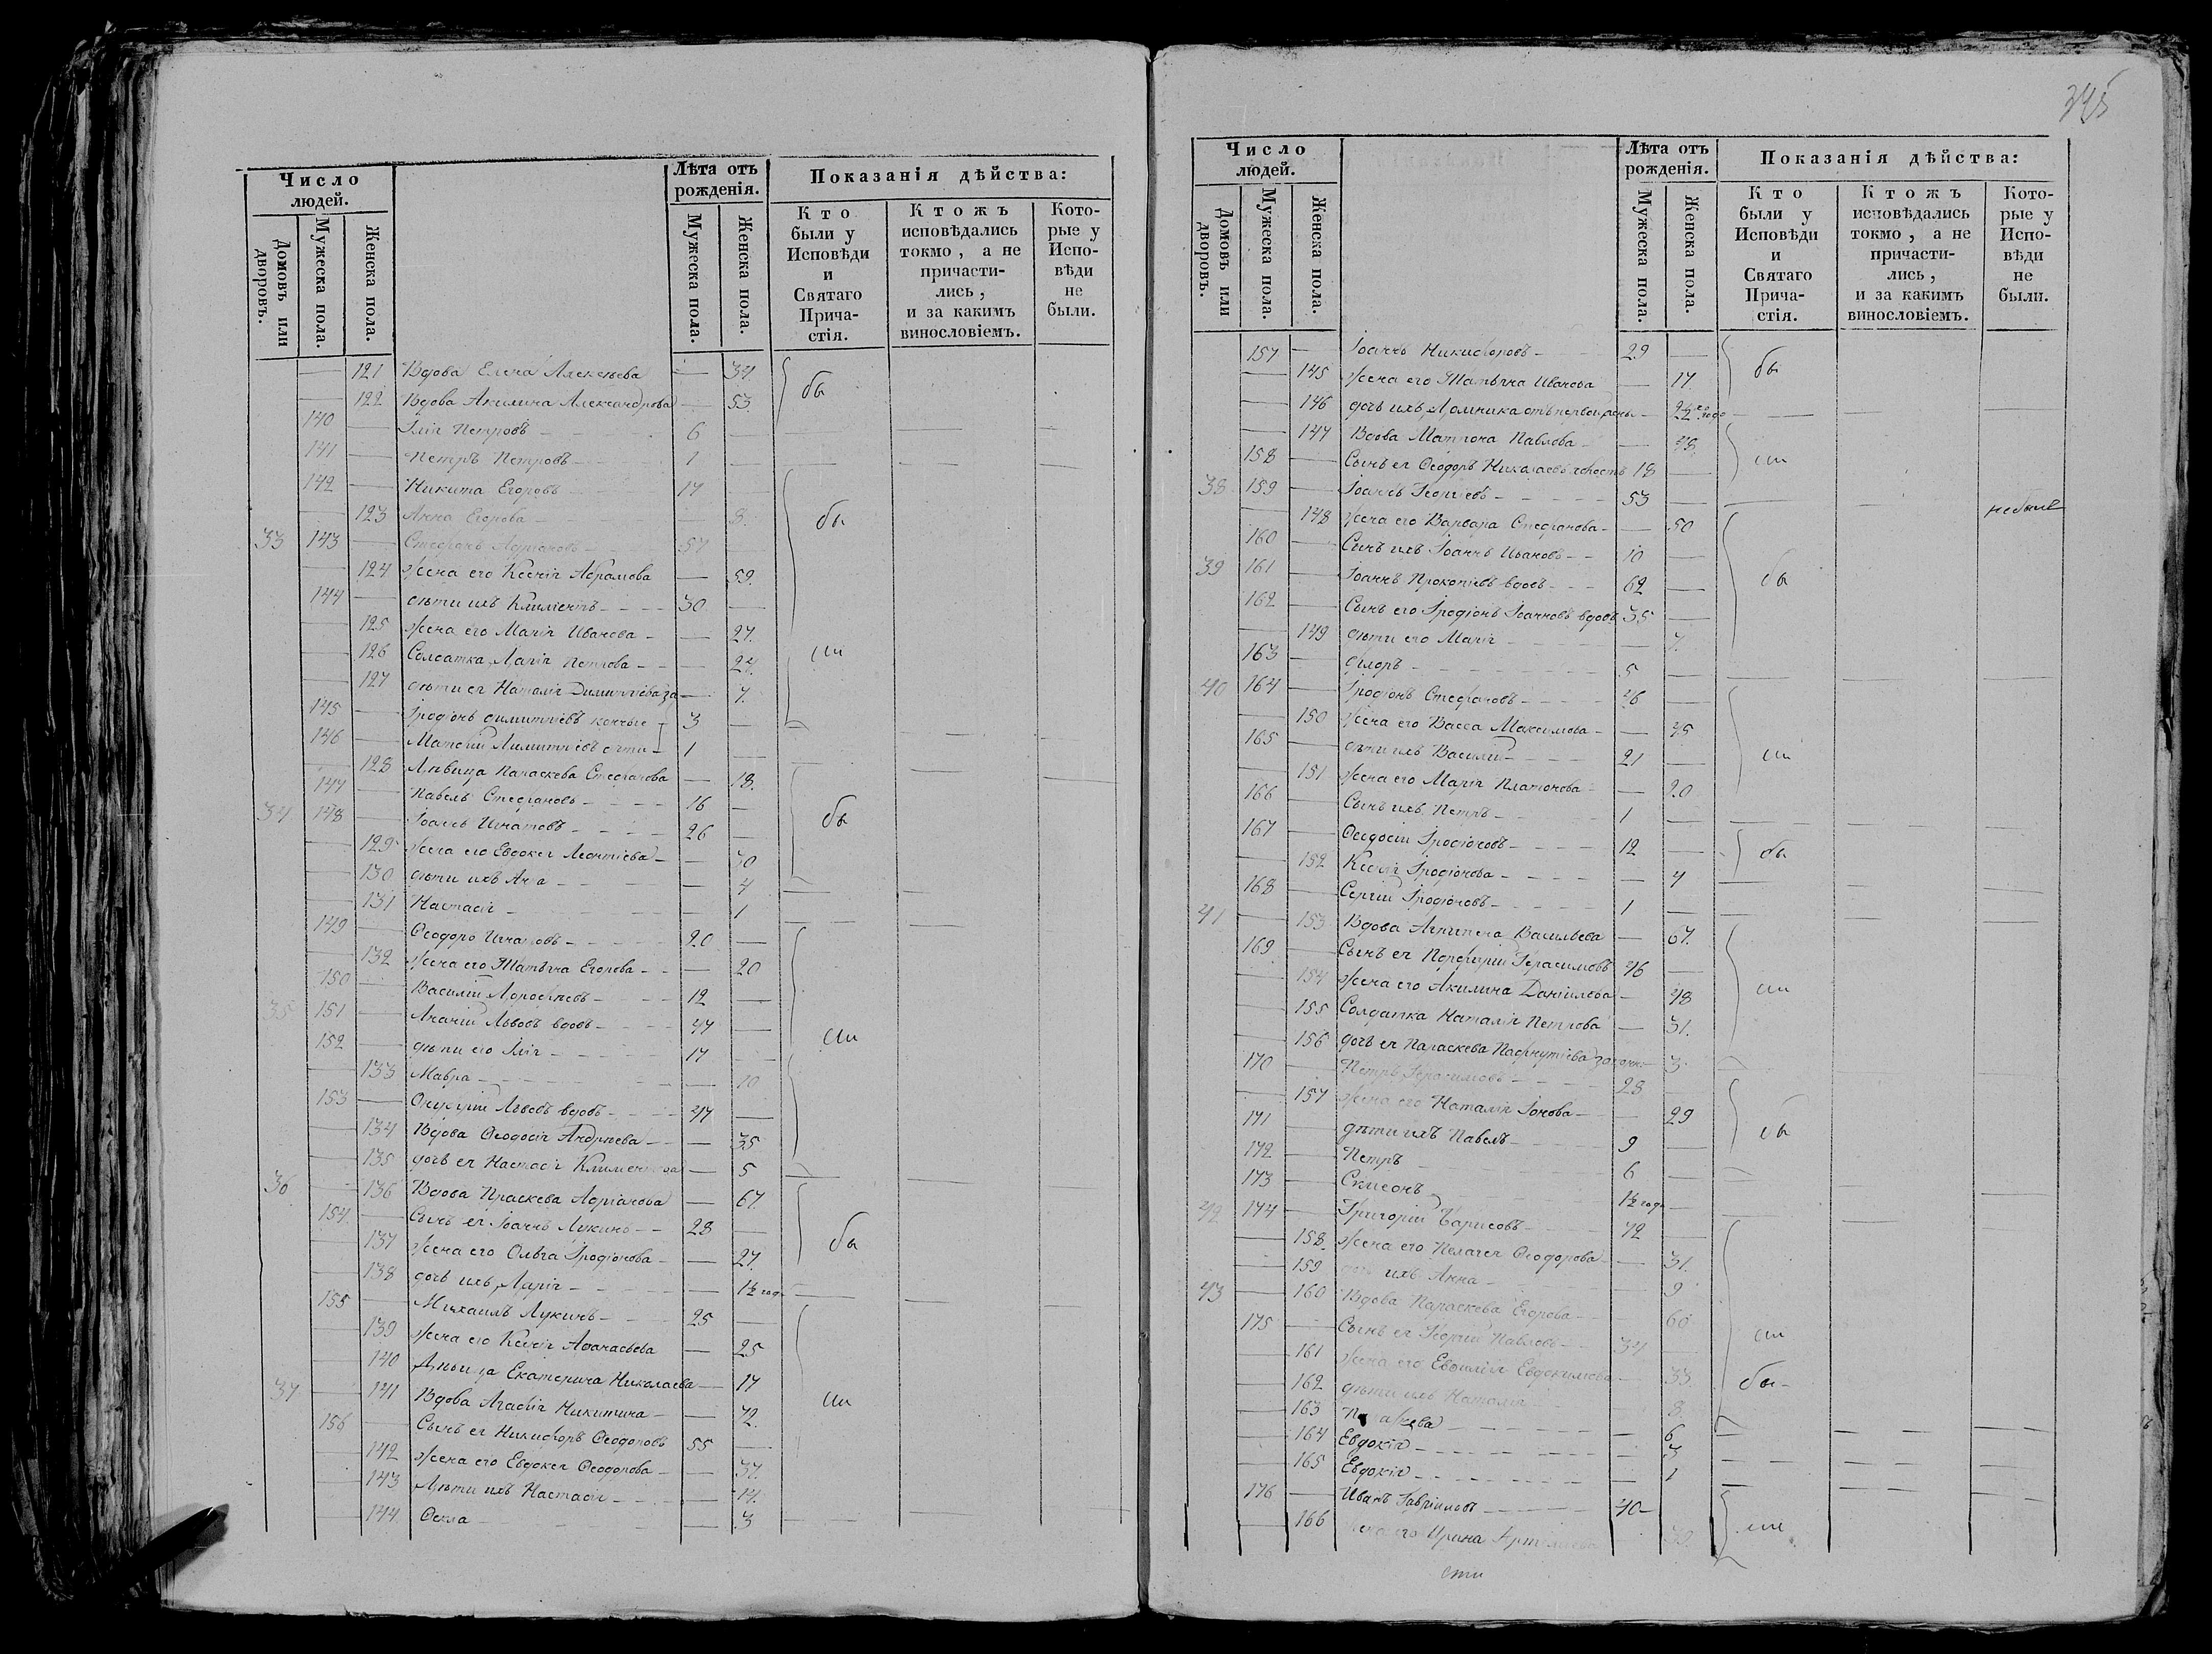 Число людей.
Лѣта отъ рожденія.
Показанія дѣйства:
Домовъ или дворовъ.
Мужеска пола.
Женска пола.
Мужеска пола.
Женска пола.
Кто были у Исповѣди и Святаго Прича-стія.
Ктожъ исповѣдались токмо, а не причасти-лись, и за какимъ винословіемъ.
Кото-рые у Испо-вѣди не были.
— 121 Вдова Елена Алексѣева — 34 бы
— 122 Вдова Акилина Александрова — 53.
140 — Илія Петровъ — 6 —
141 — Петръ Петровъ — 1 —
142 — Никита Егоровъ 17 —
123 Анна Егорова — 8. бы
33 143 — Стефанъ Адріановъ 57
— 124 жена его Ксенія Абрамова — 59.
144 — дѣти ихъ Климентъ 30
— 125 жена его Марія Иванова — 27.
— 126 Солдатка Марія Петрова — 24. ли
— 127 дѣти ея Наталія Димитріева — 7.
145 — Иродіонъ Димитріевъ 3 —
146 — Матвій Димитріевъ 1 —
— 128 Дѣвица Параскева Стефанова — 18.
147 — Павелъ Стефановъ 16 —
34 148 — Іоаннъ Игнатовъ 26 — бы
— 129 жена его Евдокія Леонтіева — 30
— 130 дѣти ихъ Анна — 4
— 131 Настасія — 1
149 — Ѳеодоръ Игнатовъ 20 —
— 132 жена его Татіана Егорова — 20
150 — Василій Дороѳеевъ 12 —
35 151 — Ананій Львовъ вдовъ 47 — ли
152 — дѣти его Илія 17 —
— 133 Мавра — 10
153 — Онуфрій Львовъ вдовъ 47 —
— 134 Вдова Ѳеодосія Андреева — 35
— 135 дочь ея Настасія Климентова — 5
36 — 136 Вдова Праскева Адріанова — 67.
154. — Сынъ ея Іоаннъ Лукинъ 28 —
— 137 жена его Ольга Иродіонова — 27. бы
— 138 дочь ихъ Марія — 1½ год
155 — Михаилъ Лукинъ 25 —
— 139 жена его Ксенія Аѳанасьева — 25
— 140 Дѣвица Екатерина Николаева — 17
37 — 141 Вдова Агафія Никитина — 72. ли
156 — Сынъ ея Никифоръ Ѳеодоровъ 55 —
— 142 жена его Евдокія Ѳеодорова — 37.
— 143 Дѣти ихъ Настасія — 14.
— 144 Ѳекла — 3
345
Число людей.
Лѣта отъ рожденія.
Показанія дѣйства:
Домовъ или дворовъ.
Мужеска пола.
Женска пола.
Мужеска пола.
Женска пола.
Кто были у Исповѣди и Святаго Прича-стія.
Ктожъ исповѣдались токмо, а не причасти-лись, и за какимъ винословіемъ.
Кото-рые у Испо-вѣди не были.
157 — Іоаннъ Никифоровъ — 29 — бы
— 145 жена его Татьяна Иванова — 17
— 146 дочь ихъ Домника отъ первой жены
— 147 Вдова Матрона Павлова — 48.
158 — Сынъ ея Ѳеодоръ Николаевъ холостъ 18 — ли
38 159 — Іоаннъ Георгіевъ 53 — небылъ
— 148 жена его Варвара Стефанова — 50
160 — Сынъ ихъ Іоаннъ Ивановъ 10 —
39 161 — Іоаннъ Прокопіевъ вдовъ 62 — бы
162 — Сынъ его Иродіонъ Іоанновъ вдовъ 35 —
— 149 дѣти его Марія — 7.
163 — Ѳедоръ 5 —
40 164 — Иродіонъ Стефановъ 46 —
— 150 жена его Васса Максимова — 45
165 — дѣти ихъ Василій 21 — ли
— 151 жена его Марія Платонова — 20
166 — Сынъ ихъ Петръ 1 —
167 — Ѳеодосій Иродіоновъ 12 — бы
— 152 Ксенія Иродіонова — 7
168 — Сергій Иродіоновъ 1 —
41 — 153 Вдова Агрипена Васильева — 67.
169 — Сынъ ея Порфирій Герасимовъ 46 —
— 154 жена его Акилина Даніилова — 48 ли
— 155 Солдатка Наталія Петрова — 31.
— 156 дочь ея Параскева Пафнутіева законн 3
170 — Петръ Герасимовъ 28
— 157 жена его Наталія Іонова — 29
171 — дѣти ихъ Павелъ 9 — бы
172 — Петръ 6 —
173 — Симеонъ 1½ года
42 174 — Григорій Борисовъ 42
— 158. жена его Пелагея Ѳеодорова — 31.
— 159 ихъ Анна 9
43 — 160 Вдова Параскева Егорова 60
175 — Сынъ ея Георгій Павловъ 34 ли
— 161 жена его Евфимія Евдокимова 33 бы-
— 162 дѣти ихъ Наталія 8
— 163 Параскева — 6
— 164 Евдокія — 3
— 165 Евдокія — 1
176 — Иванъ Гавріиловъ 40-
— 166 жена его Ирина ли